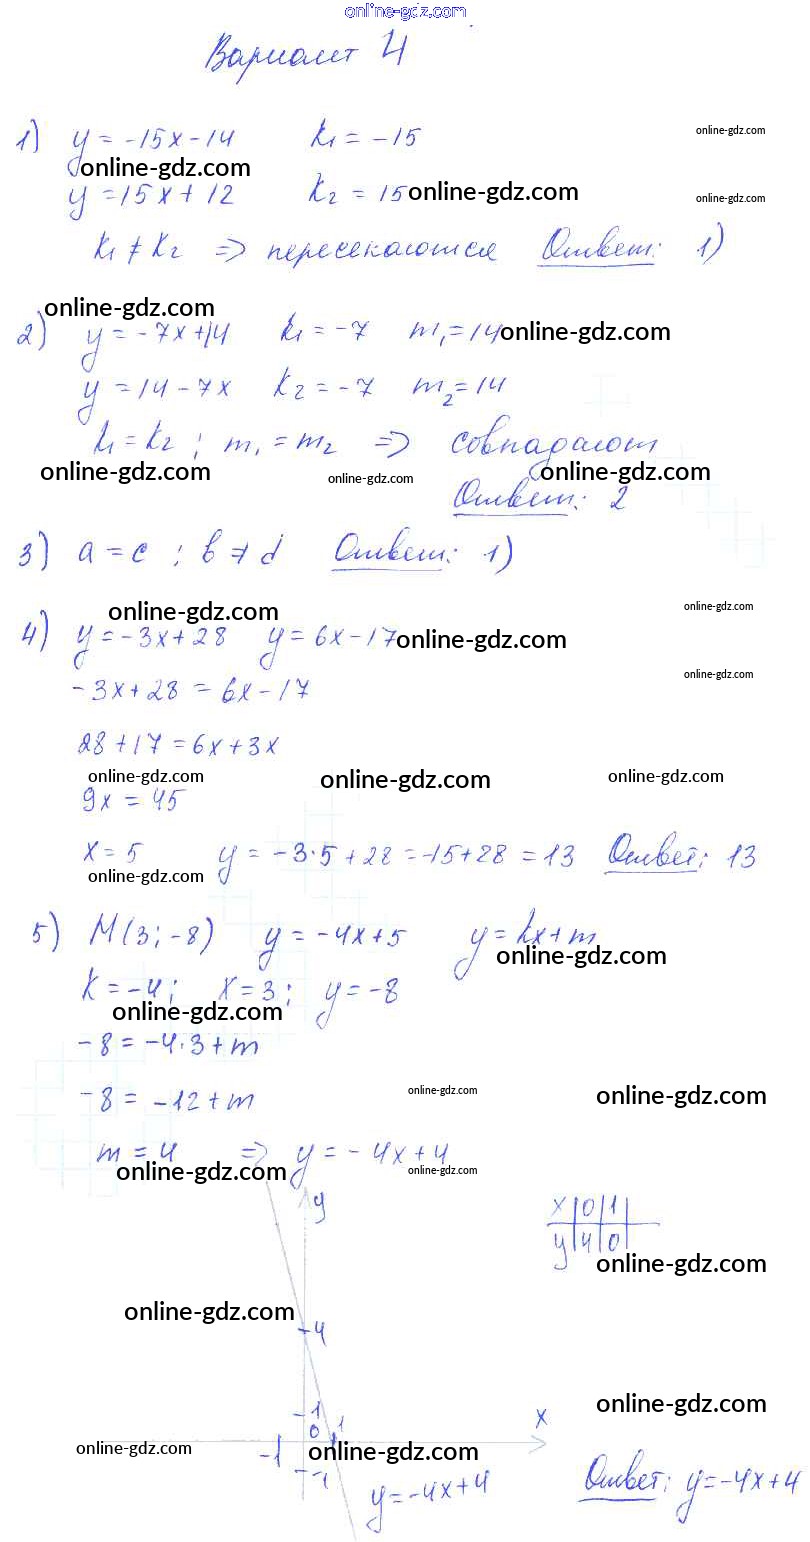 online-gdz.com
Вариант 4
1) y = -15x - 14 k₁ = -15 online-gdz.com
online-gdz.com
y = 15x + 12 k₂ = 15 online-gdz.com online-gdz.com
k₁ ≠ k₂ => пересекаются Ответ: 1)
online-gdz.com
2) y = -7x + 14 k₁ = -7 m₁ = 14 online-gdz.com
y = 14 - 7x k₂ = -7 m₂ = 14
k₁ = k₂ ; m₁ = m₂ => совпадают
online-gdz.com online-gdz.com online-gdz.com
Ответ: 2
3) a = c ; b ≠ d Ответ: 1)
online-gdz.com online-gdz.com
4) y = -3x + 28 y = 6x - 17 online-gdz.com
-3x + 28 = 6x - 17 online-gdz.com
28 + 17 = 6x + 3x
online-gdz.com online-gdz.com online-gdz.com
9x = 45
x = 5 y = -3·5 + 28 = -15 + 28 = 13 Ответ: 13
online-gdz.com
5) M(3; -8) y = -4x + 5 y = kx + m
online-gdz.com
k = -4; x = 3; y = -8
online-gdz.com
-8 = -4·3 + m
online-gdz.com online-gdz.com
-8 = -12 + m
m = 4 => y = -4x + 4
online-gdz.com online-gdz.com
y
x 0 1
y 4 0
online-gdz.com
online-gdz.com
4
online-gdz.com
1
0 1 x
online-gdz.com -1 online-gdz.com
-1
y = -4x + 4 Ответ: y = -4x + 4